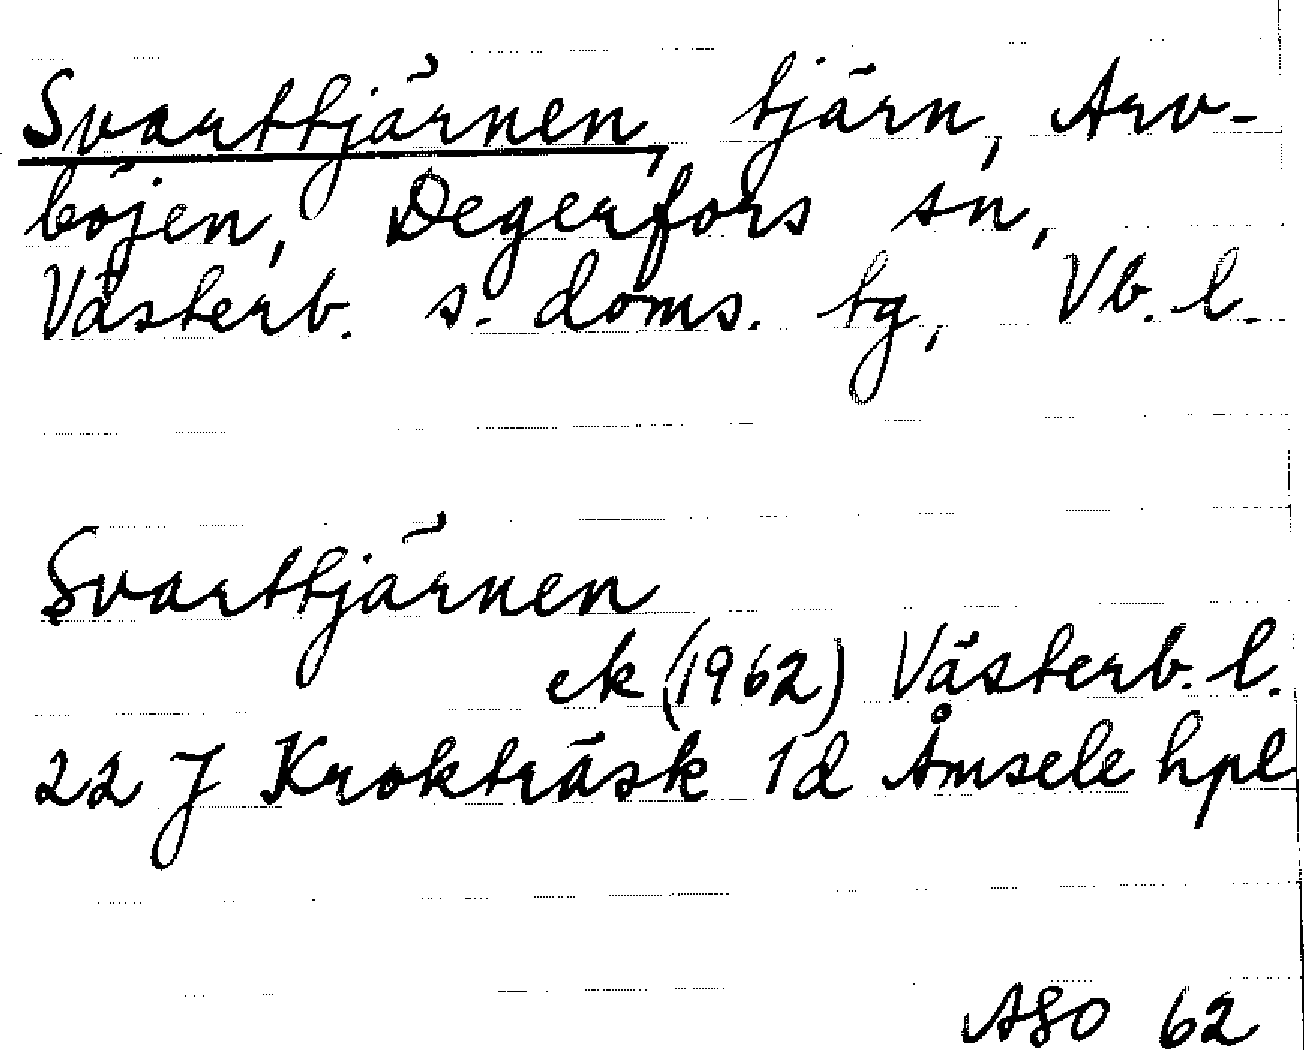 Svarttjärnen, tjärn, Arv-
böjen, Degerfors sn,
Västerb. s. doms. tg, Vb. l.
Svarttjärnen
ek (1962) Västerb. l.
22 J Krokträsk 1d Åmsele hpl
ASO 62